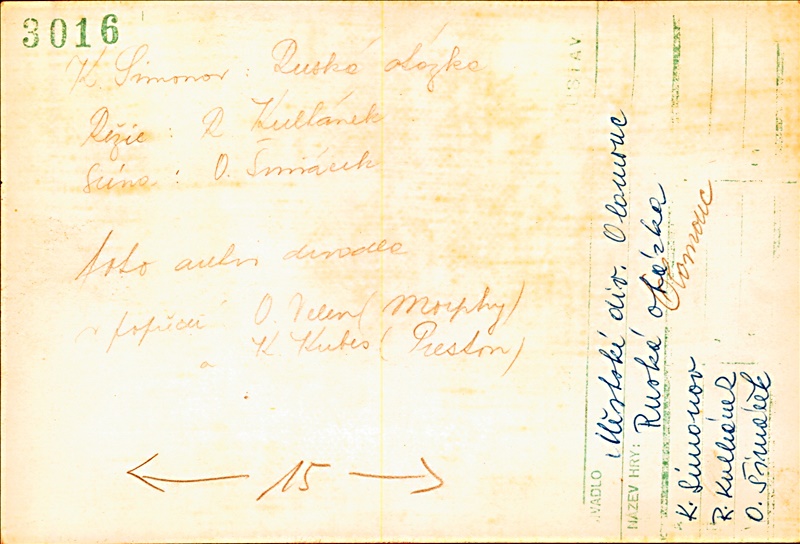 3016
K. Simonov : Ruská otázka
Režie : R Kulhánek
Scéna : O. Šimáček
foto archiv divadla
v popředí O. Velen (Morphy)
a K Kubes (Preston)
← 15 →
ÚSTAV
DIVADLO Městské div. Olomouc
NÁZEV HRY: Ruská otázka
Olomouc
K. Simonov
R. Kulhánek
O. Šimáček